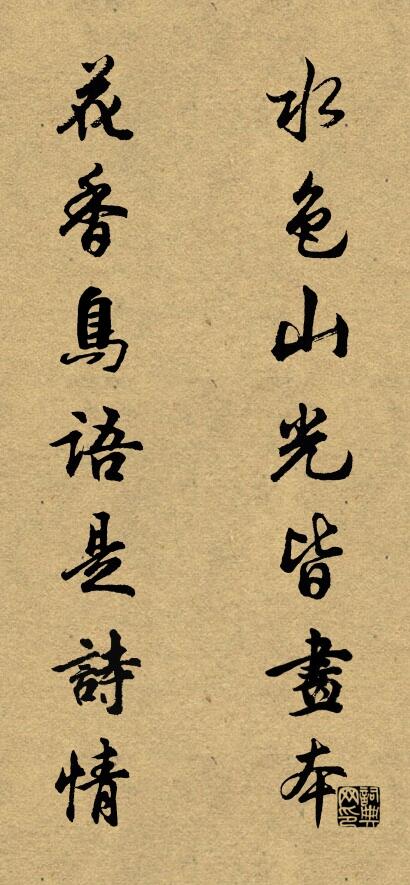 水色山光皆畫本
花香鳥語是詩情
詞典网印